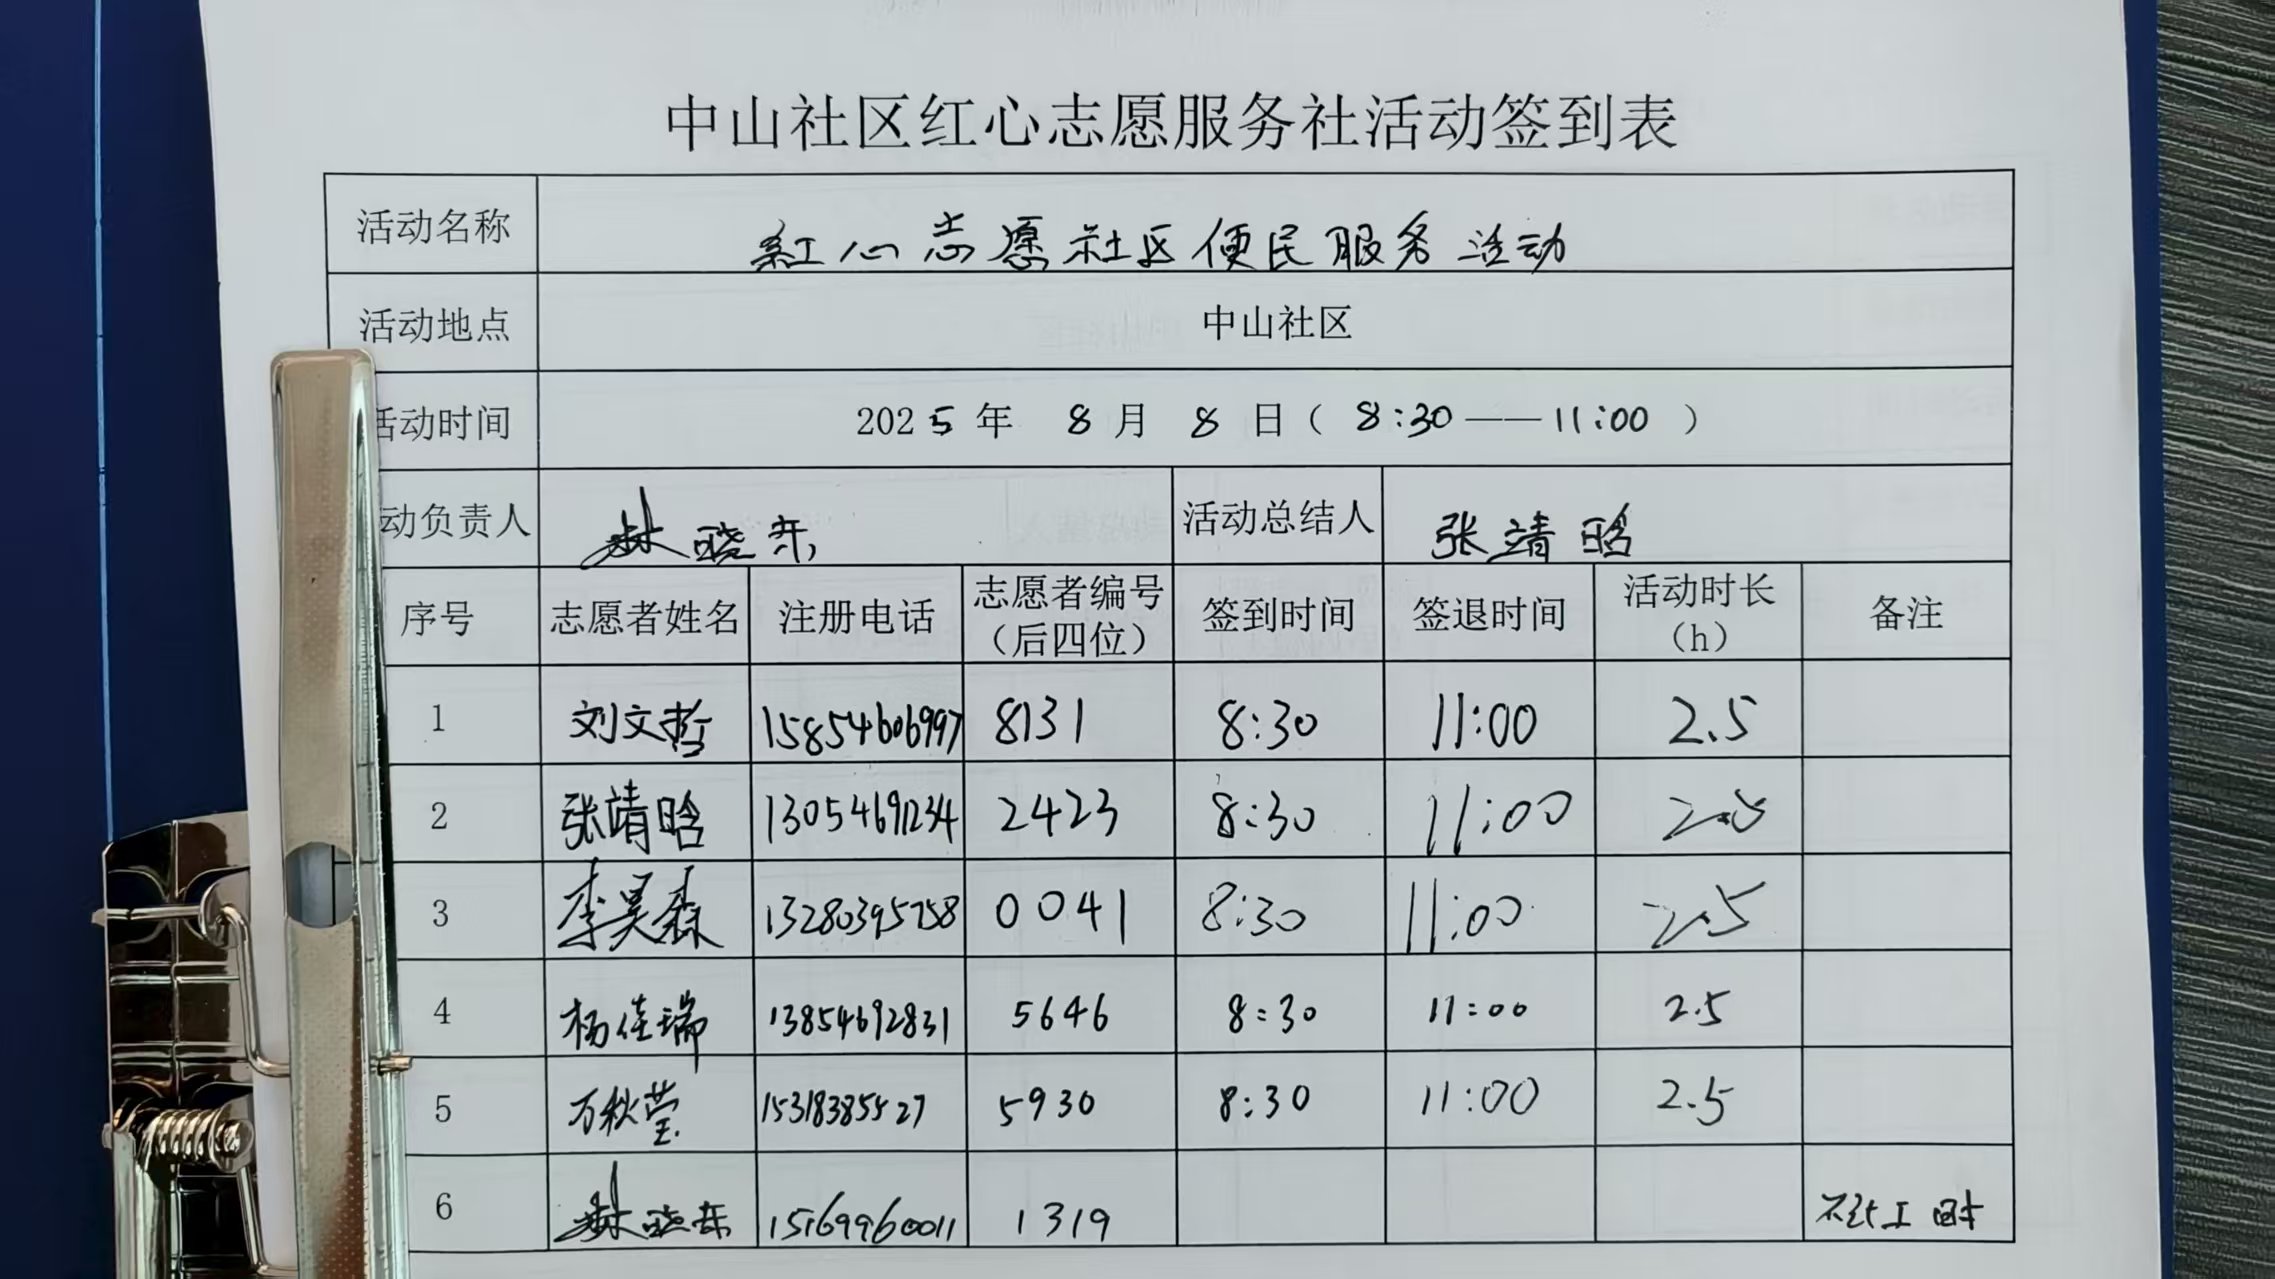 中山社区红心志愿服务社活动签到表
活动名称 红心志愿社区便民服务活动
活动地点 中山社区
活动时间 2025年 8月 8日（ 8:30 —— 11:00 ）
动负责人 林晓东 活动总结人 张靖晗
序号 志愿者姓名 注册电话 志愿者编号（后四位） 签到时间 签退时间 活动时长（h） 备注
1 刘文哲 15854606997 8131 8:30 11:00 2.5
2 张靖晗 13054691234 2423 8:30 11:00 2.5
3 李昊森 13280395758 0041 8:30 11:00 2.5
4 杨佳瑞 13854692831 5646 8:30 11:00 2.5
5 万秋莹 15318385527 5930 8:30 11:00 2.5
6 林晓东 15169960011 1319 不计工时